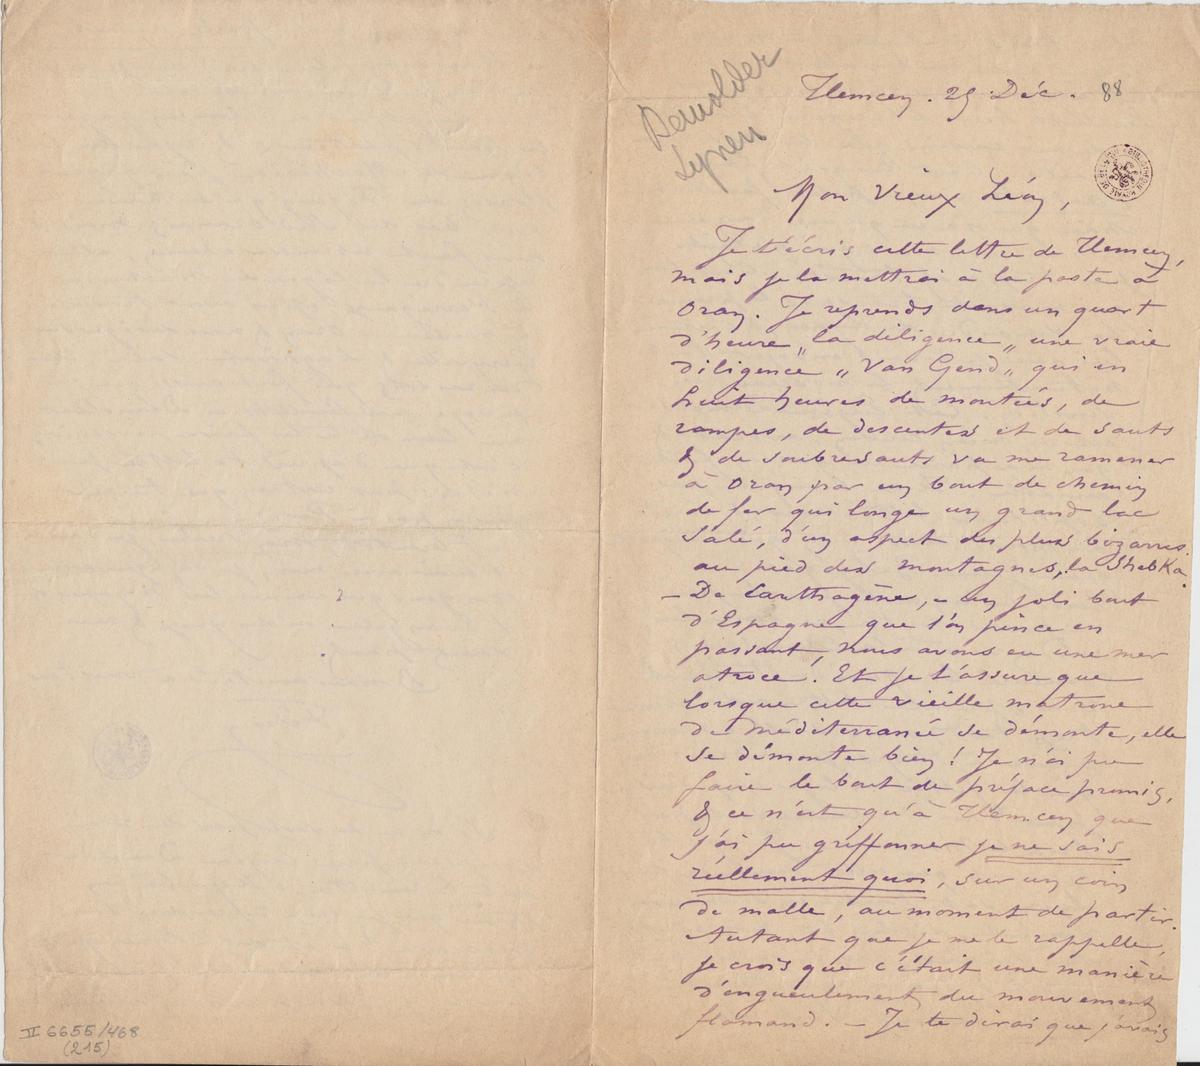 Demolder
Lynen
Tlemcen. 29 Déc. 88
Mon Vieux Léon,
Je t'écris cette lettre de Tlemcen,
mais je la mettrai à la poste à
Oran. Je reprends dans un quart
d'heure „la diligence„ une vraie
diligence „Van Gend„ qui en
huit heures de montées, de
rampes, de descentes et de sauts
& de soubresauts va me ramener
à Oran par un bout de chemin
de fer qui longe un grand lac
salé, d'un aspect des plus bizarres
au pied des montagnes, la Shebka.
– De Carthagène, – un joli bout
d'Espagne que l'on pince en
passant, nous avons eu une mer
atroce. Et je t'assure que
lorsque cette vieille matrone
de méditerranée se démonte, elle
se démonte bien! Je n'ai pu
faire le bout de préface promis,
& ce n'est qu'à Tlemcen que
j'ai pu griffonner je ne sais
réellement quoi, sur un coin
de malle, au moment de partir.
Autant que je me le rappelle,
je crois que c'était une manière
d'engueulement du mouvement
flamand. – Je te dirai que j'avais
II 6655/468
(215)